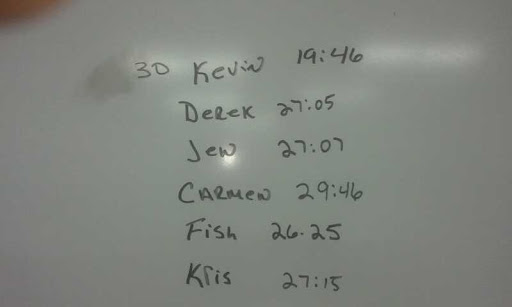 30 Kevin 19:46
Derek 27:05
Jen 27:07
Carmen 29:46
Fish 26.25
Kris 27:15